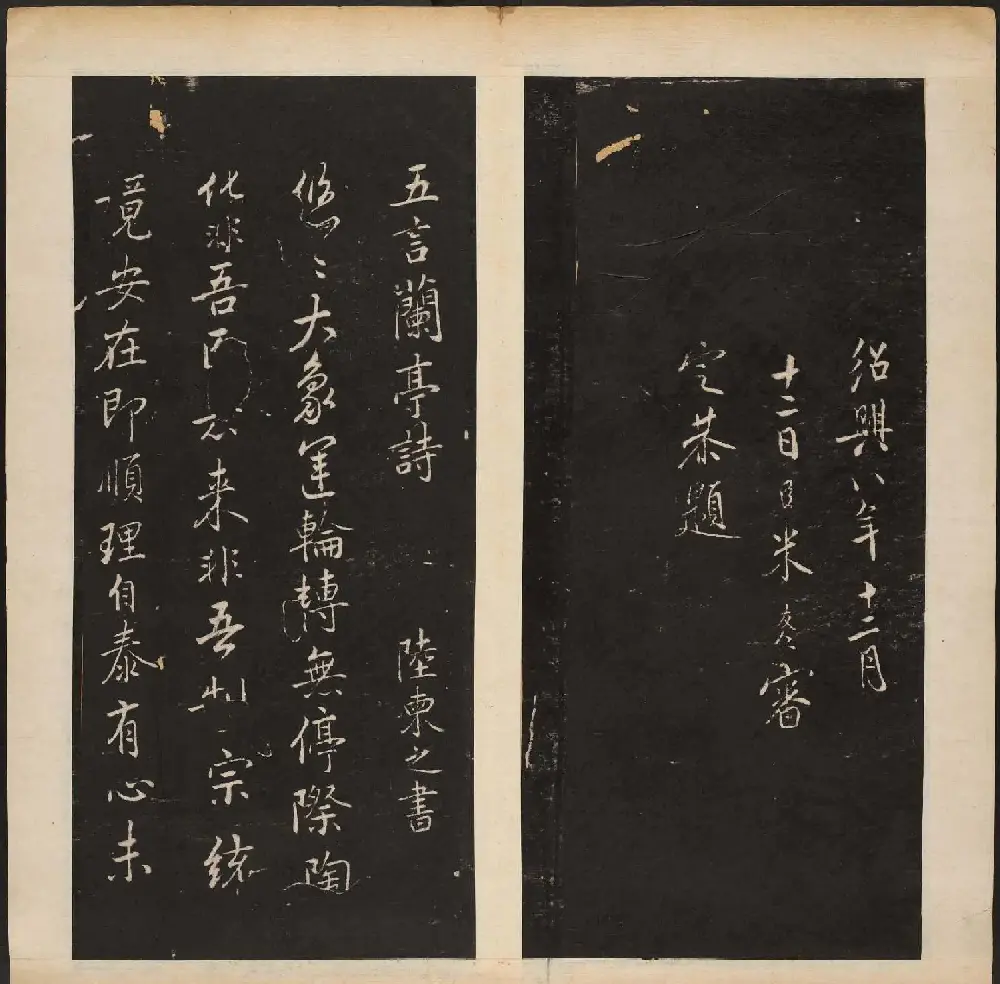 紹興八年十二月
十二日臣米友仁審
定恭題
五言蘭亭詩 陸柬之書
悠〻大象運輪轉無停際陶
化非吾因去来非吾制宗統
竟安在即順理自泰有心未